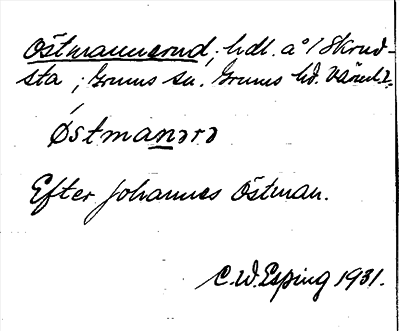 Östmannerud; hdl. å 1 Skruds-
sta; Grums sn. Grums hd. Värml.
Østmanərə
Efter Johannes Östman.
C. W. Esping 1931.